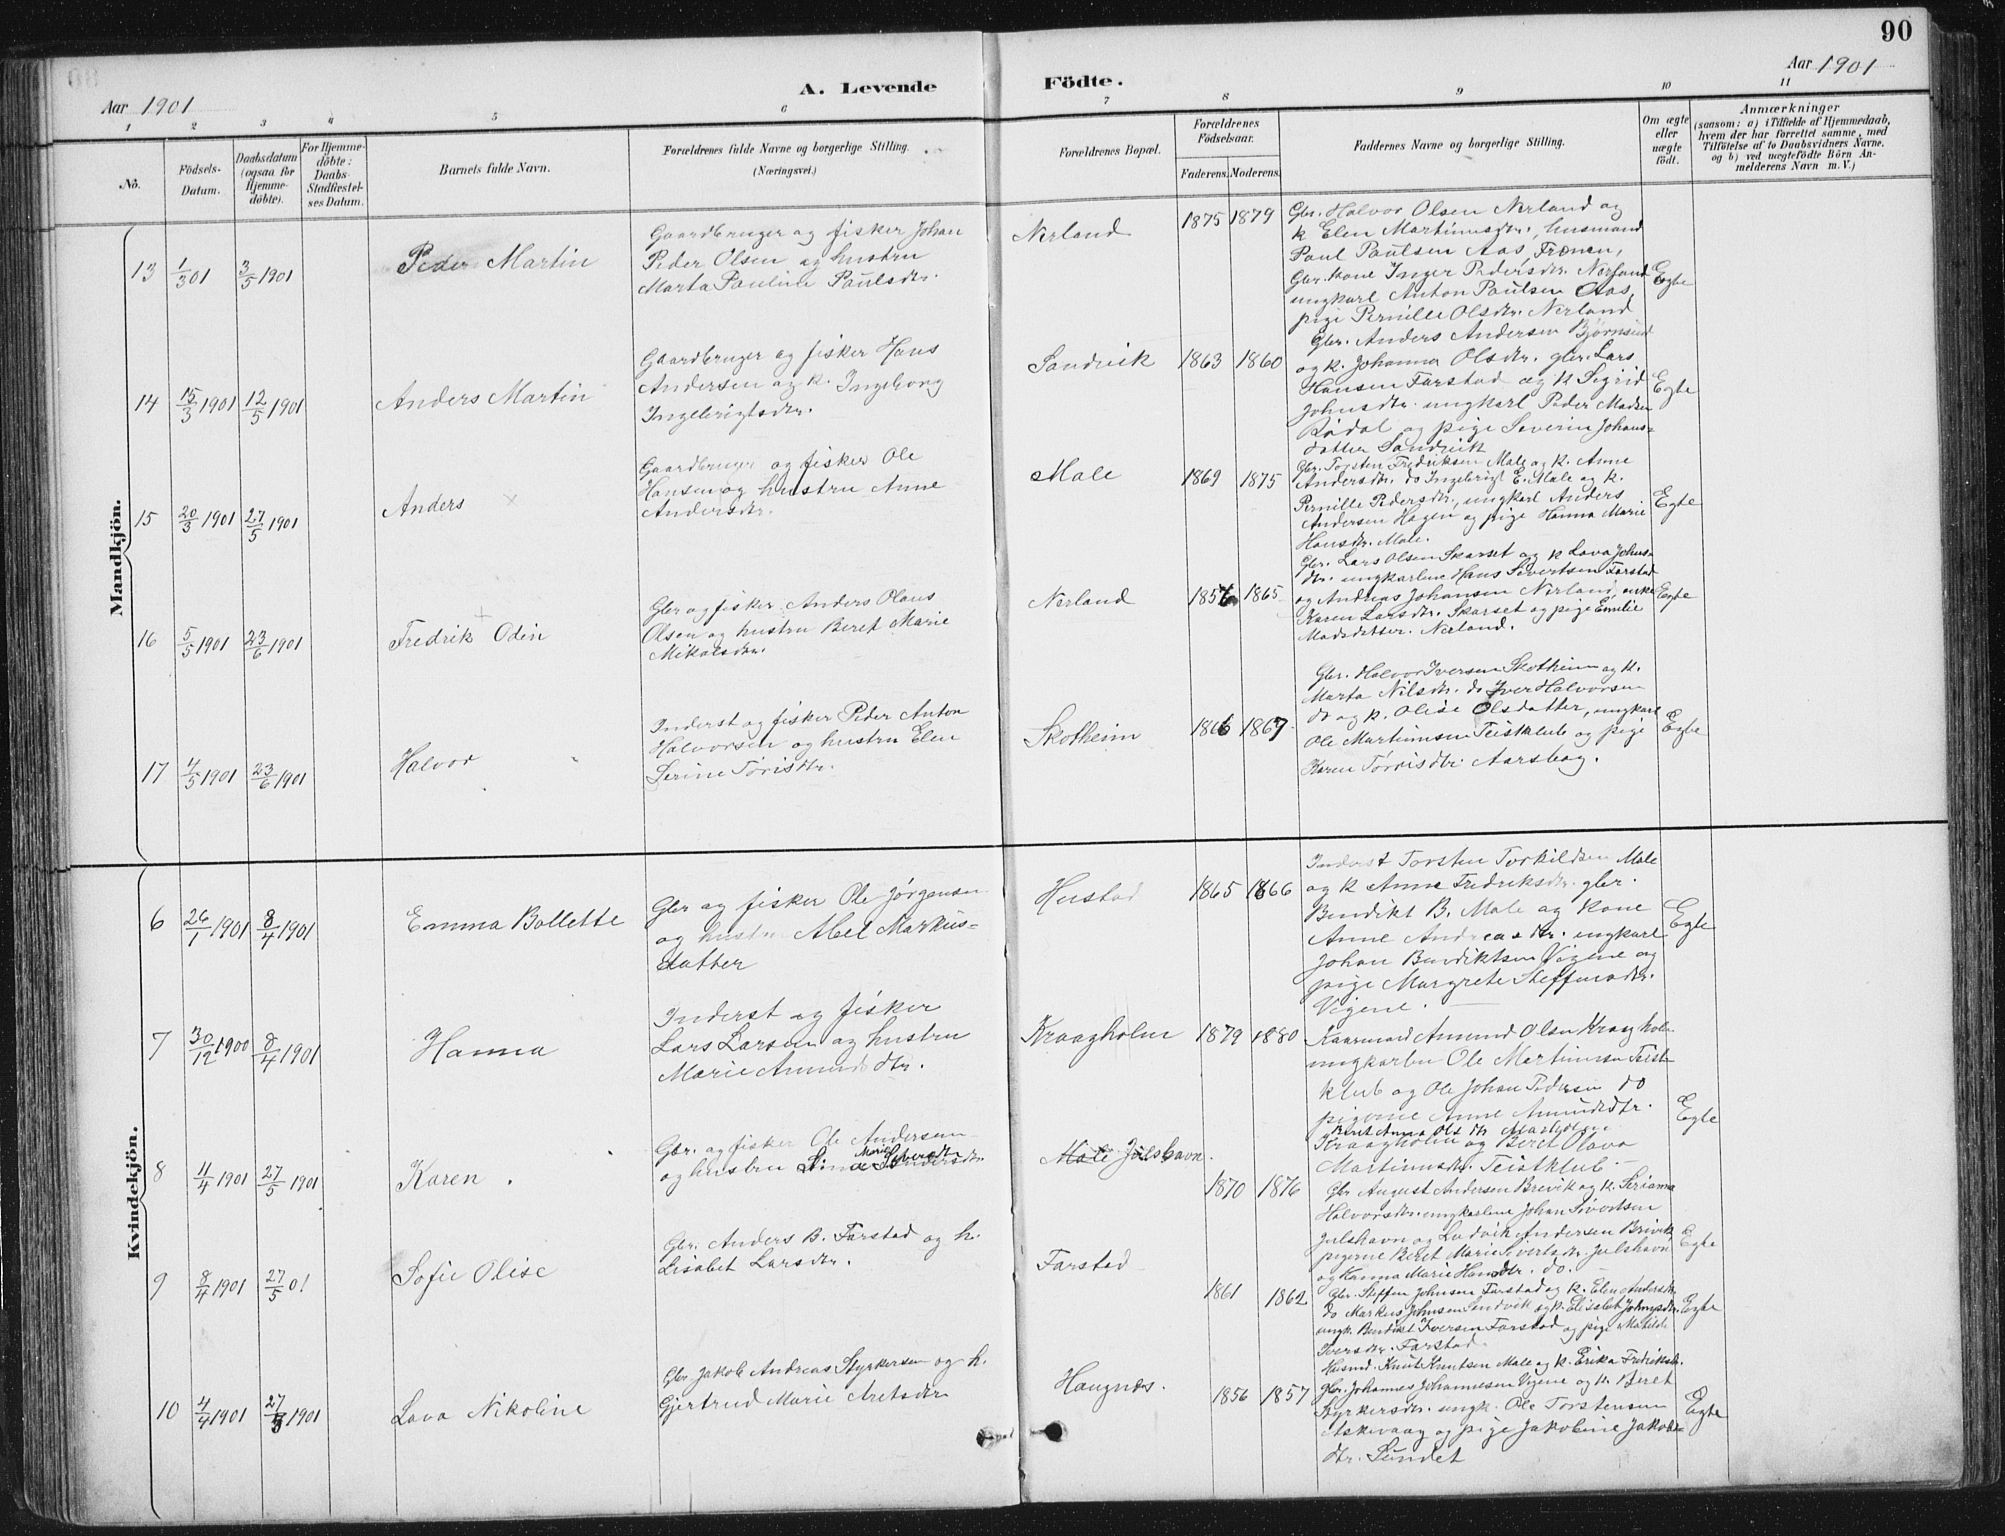 90
Aar 1901
A. Levende Födte.
Aar 1901
1 2 3 4 5 6 7 8 9 10 11
No.
Födsels-
Datum.
Daabsdatum
(ogsaa for
Hjemme-
döbte).
For Hjemme-
döbte:
Daabs-
Stadfæstel-
ses Datum.
Barnets fulde Navn.
Forældrenes fulde Navne og borgerlige Stilling.
(Næringsvei.)
Forældrenes Bopæl.
Forældrenes
Födselsaar.
Faderens. Moderens.
Faddernes Navne og borgerlige Stilling.
Om ægte
eller
uægte
födt.
Anmærkninger
(saasom: a) i Tilfælde af Hjemmedaab,
hvem der har forrettet samme, med
Tilföielse af to Daabsvidners Navne.
og b) ved uægtefödte Börn An-
melderens Navn m. V.)
Mandkjön.
13 1/3 01 3/5 1901
Peder Martin
Gaardbruger og fisker Johan
Peder Olsen og hustru
Marta Pauline Paulsdtr.
Nerland
1875 1879
Gbr. Halvor Olsen Nerland og
k Elen Martinusdtr., husmand
Paul Paulsen Aas, Frænen,
Gbr. kone Inger Pedersdtr. Nerland
ungkarl Anton Paulsen Aas,
pige Pernille Olsdtr. Nerland
Egte
14 15/3 1901 12/5 1901
Anders Martin
Gaardbruger og fisker Hans
Andersen og k. Ingeborg
Ingebrigtsdtr.
Sandvik
1863 1860
Gbr. Anders Andersen Bjørnsund
og k. Johanna Olsdtr. gbr. Lars
Hansen Farstad og k Sigrid
Johnsdtr. ungkarl Peder Madsen
og pige Severine Johans-
datter Sandvik
Egte
15 20/3 1901 27/5 1901
Anders
Gaardbruger og fisker Ole
Hansen og hustru Anne
Andersdtr.
Male
1869 1875
Gbr. Torsten Fredriksen Male og k. Anne
Andersdtr. do Ingebrigt E. Male og k.
Pernille Pedersdtr., ungkarl Anders
Andersen Hagen og pige Hanna Marie
Hansdtr. Male.
Egte
16 5/5 1901 23/6 1901
Fredrik Odin
Gbr og fisker Anders Olaus
Olsen og hustru Beret Marie
Mikalsdtr.
Nerland
1856 1865
Gbr. Lars Olsen Skarset og k Lava Johns-
dtr. ungkarlene Hans Sivertsen Farstad
og Andreas Johansen Nerland, enke
Karen Larsdtr. Skarset og pige Emilie
Madsdatter. Nerland.
Egte
17 4/5 1901 23/6 1901
Halvor
Inderst og fisker Peder Anton
Halvorsen og hustru Elen
Serine Tørrisdtr.
Skotheim
1866 1867
Gbr. Halvor Iversen Skotheim og k.
Marta Nilsdtr. do Iver Halvorsen
do og k. Olise Olsdatter, ungkarl
Ole Martinusen Teistklub og pige
Karen Tørrisdtr. Aarsbog.
Egte
Kvindekjön.
6 26/1 1901 8/4 1901
Emma Bollette
Gbr og fisker Ole Jørgensen
og hustru Abel Markus-
datter
Hustad
1865 1866
Inderst Torsten Torkildsen Male
og k Anne Fredriksdtr. gbr.
Bendikt B. Male og kone
Anne Andreasdtr. ungkarl
Johan Bendiktsen Vigene og
pige Margrete Steffensdtr.
Vigene.
Egte
7 30/12 1900 8/4 1901
Hanna
Inderst og fisker
Lars Larsen og hustru
Marie Amundsdtr.
Kraagholm
1879 1880
Kaarmand Amund Olsen Kraaghol
ungkarlen Ole Martinusen Teist-
klub og Ole Johan Pedersen do
pigerne Anne Amundsdtr.
Kraagholm og Beret Olava
Martinusdtr. Teistklub.
Egte
8 4/4 1901 27/5 1901
Karen.
Gbr. og fisker Ole Andersen
og hustru
Male Julshavn.
1870 1876
Gbr August Andersen Brevik og k. Serianna
Halvorsdtr. ungkarlene Johan Sivertsen
Julshavn og Ludvik Andersen Brevik
pigerne Beret Marie Sivertsdtr. Julshavn
og Hanna Marie Hansdtr. do.
Egte
9 8/4 1901 27/5 01
Sofie Olise
Gbr. Anders B. Farstad og h.
Lisabet Larsdtr.
Farstad
1861 1862
Gbr. Steffen Johnsen Farstad og k. Elen Andersdtr
do Markus Johnsen Sandvik og k. Elisabet Johnsdtr.
ungk. Bendikt Iversen Farstad og pige Matilde
Iversdtr. Farstad
Egte
10 4/4 1901 27/5 1901
Lava Nikoline
Gbr. Jakob Andreas Styrkersen og h.
Gjertrud Marie Aretsdtr
Haugnæs.
1856 1857
Husmd. Knut Knutsen Male og k. Erika Fredriksdtr.
gbr. Johannes Johannesen Vigene og k. Beret
Styrkersdtr. ungk. Ole Torstensen
Askevaag og pige Jakobine Jakobs-
dtr. Sundet
Egte